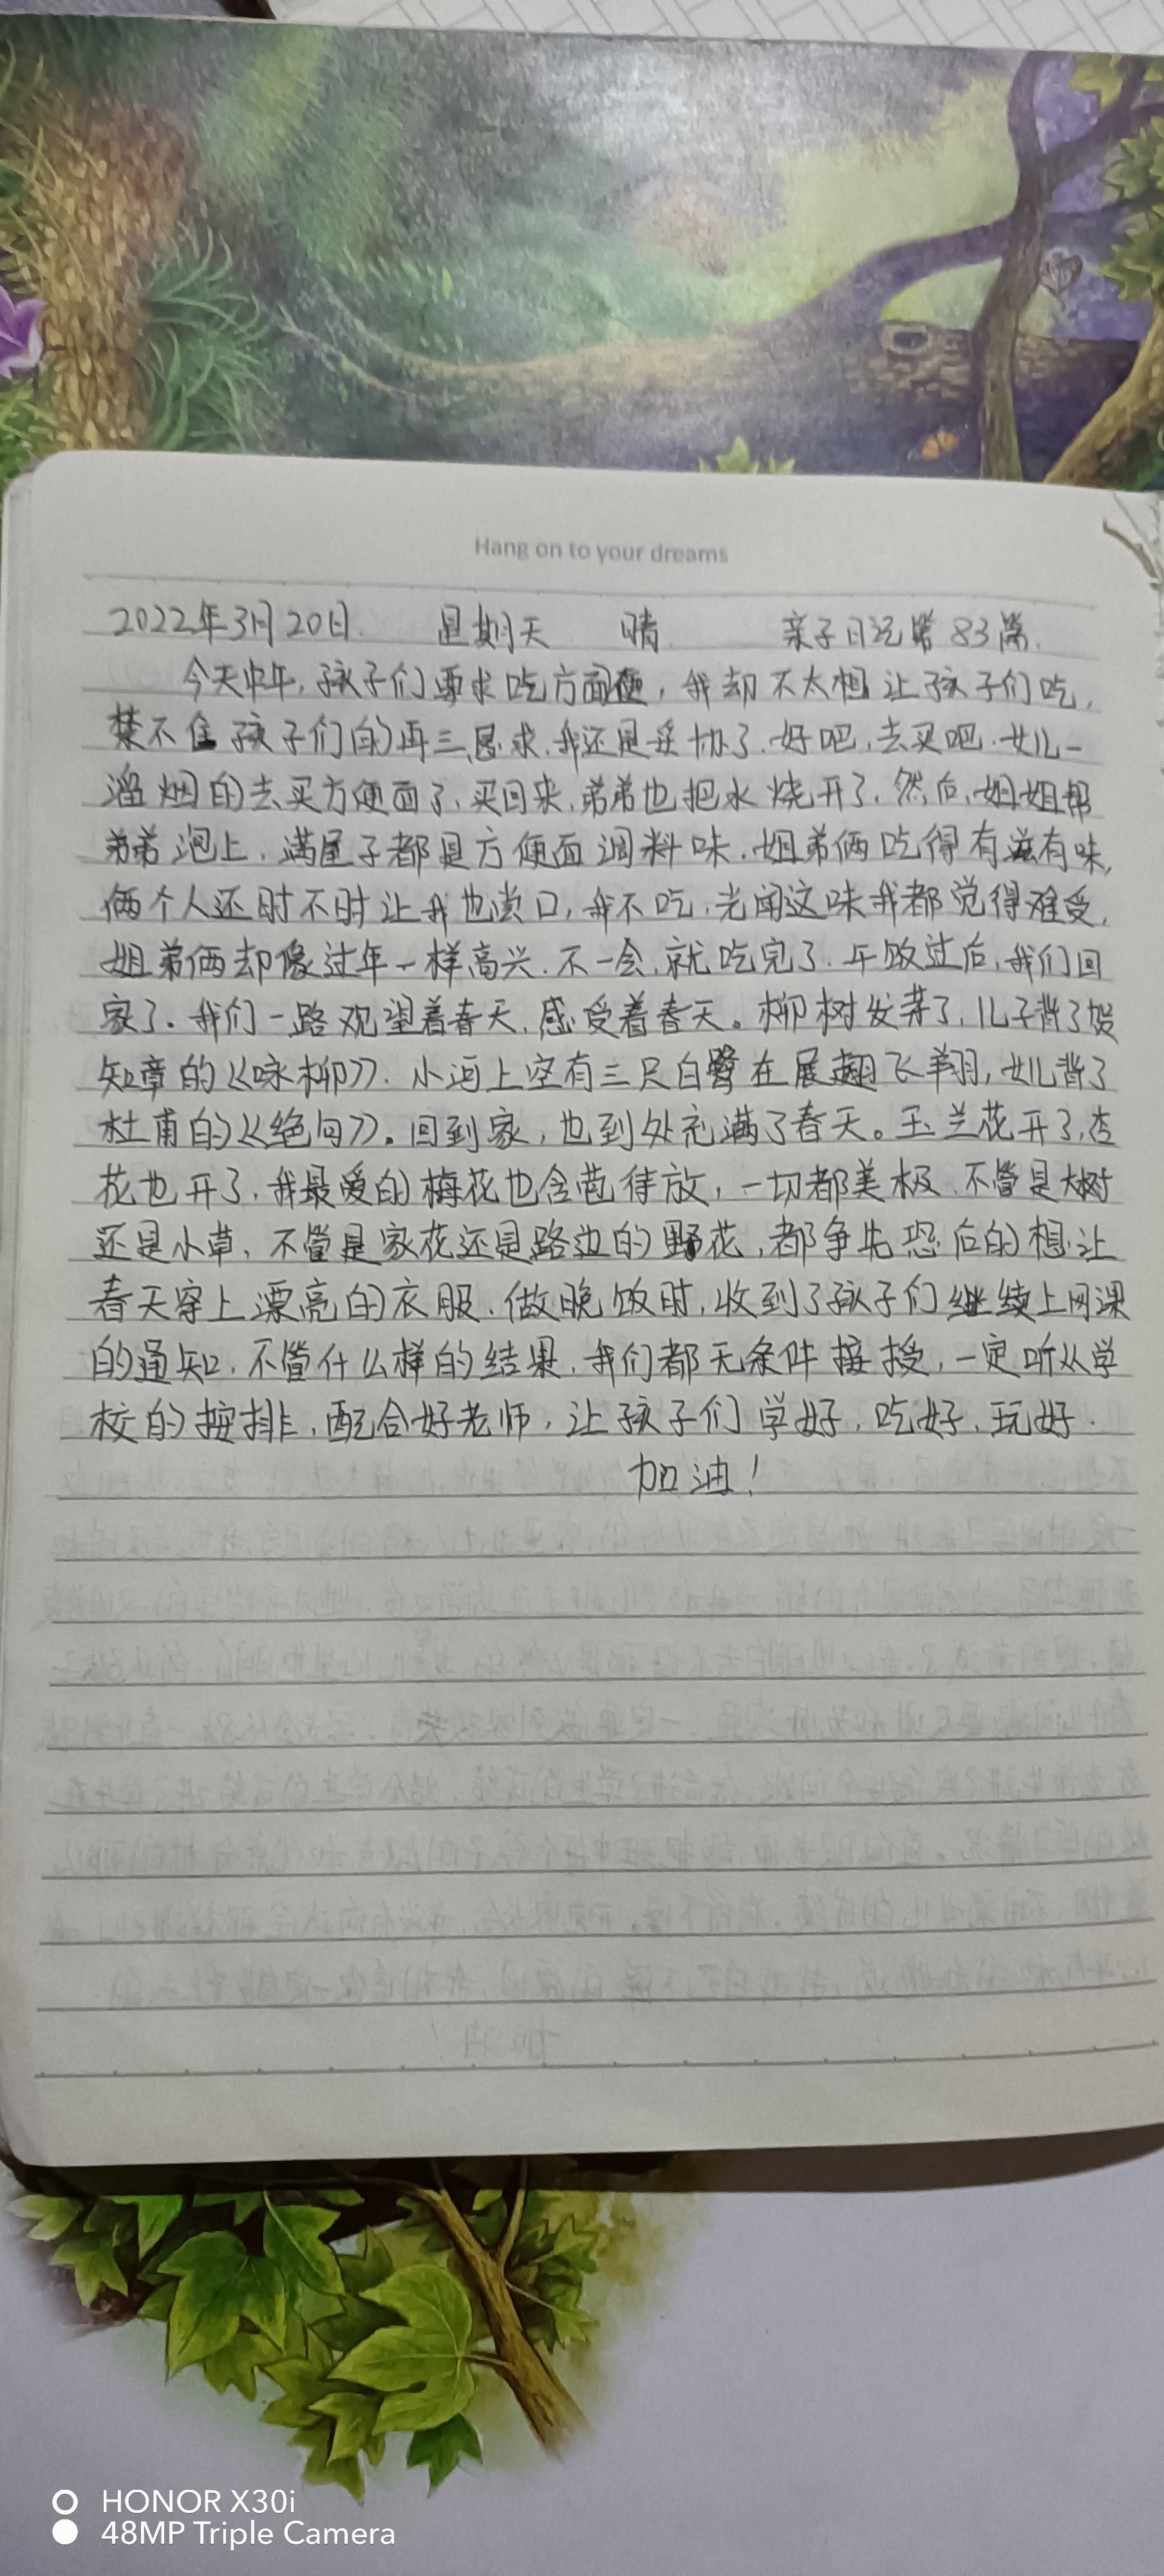 Hang on to your dreams
2022年3月20日. 星期天 晴. 亲子日记第83篇.
今天中午,孩子们要求吃方面便,我却不太想让孩子们吃,
禁不住孩子们的再三恳求.我还是妥协了.好吧,去买吧.女儿一
溜烟的去买方便面了,买回来,弟弟也把水烧开了.然后,姐姐帮
弟弟泡上.满屋子都是方便面调料味.姐弟俩吃得有滋有味,
俩个人还时不时让我也尝口,我不吃,光闻这味我都觉得难受,
姐弟俩却像过年一样高兴.不一会,就吃完了.午饭过后,我们回
家了。我们一路观望着春天,感受着春天。柳树发芽了,儿子背了贺
知章的《咏柳》.小河上空有三只白鹭在展翅飞翔,女儿背了
杜甫的《绝句》。回到家,也到处充满了春天。玉兰花开了,杏
花也开了,我最爱的梅花也含苞待放,一切都美极.不管是大树
还是小草,不管是家花还是路边的野花,都争先恐后的想让
春天穿上漂亮的衣服.做晚饭时,收到了孩子们继续上网课
的通知.不管什么样的结果,我们都无条件接授,一定听从学
校的按排,配合好老师,让孩子们学好,吃好,玩好.
加油!
HONOR X30i
48MP Triple Camera